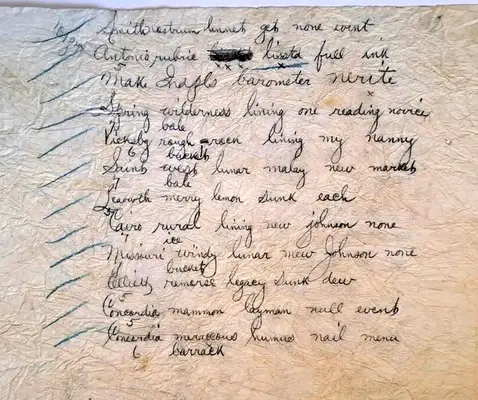 Smith nostrum linnet get none event
Antonio rubric lissta full ink
Make Indpls barometer nerite
Spring wilderness lining one reading novice
bale
Vicksbg rough rack lining my nanny
bucket
Saints west lunar malay new markets
bale
merry lemon sunk each
Cairo rural lining new johnson none
ice
Missouri windy lunar mew Johnson none
bucket
legacy sunk dew
Concordia mammon layman null events
Concordia meraccous humus nail menu
6 barrack